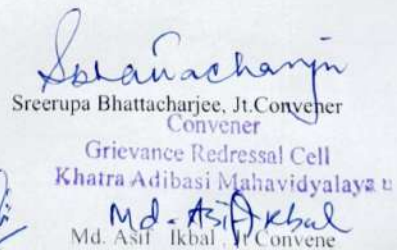 Sreerupa Bhattacharjee, Jt.Convener
Convener
Grievance Redressal Cell
Khatra Adibasi Mahavidyalaya
Md. Asif Ikbal
Md. Asif Ikbal , Jt Convene